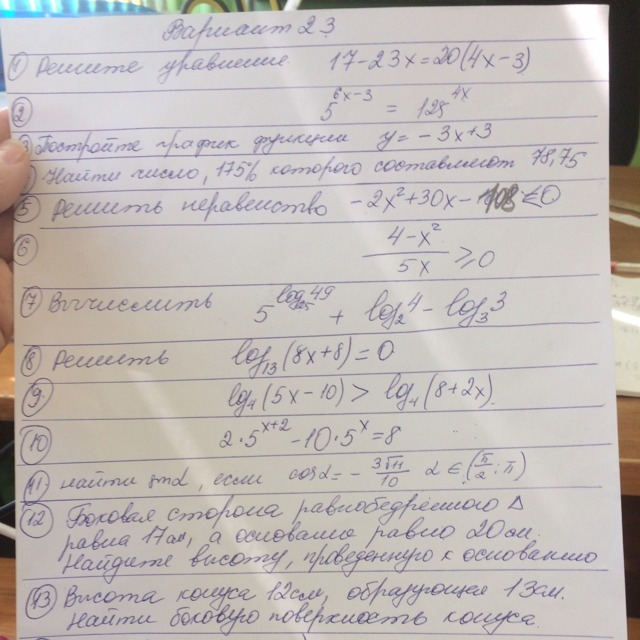 Вариант 23
① Решите уравнение 17-23x=20(4x-3)
② 5^{6x-3} = 125^{4x}
3 Постройте график функции y=-3x+3
Найти число, 175% которого составляют 78,75
⑤ Решить неравенство -2x²+30x-108 ≤0
⑥ \frac{4-x²}{5x} ≥0
⑦ Вычислить 5^{log_{25}49} + log_2 4 - log_3 3
⑧ Решить log_{13}(8x+8)=0
⑨ log_4(5x-10) > log_4(8+2x)
⑩ 2·5^{x+2}-10·5^x=8
⑪ найти sinα, если cosα=-\frac{3√11}{10} α∈(\frac{π}{2};π)
⑫ Боковая сторона равнобедренного Δ
равна 17см, а основание равно 20см.
Найдите высоту, проведенную к основанию
⑬ Высота конуса 12см, образующая 13см.
Найти боковую поверхность конуса.